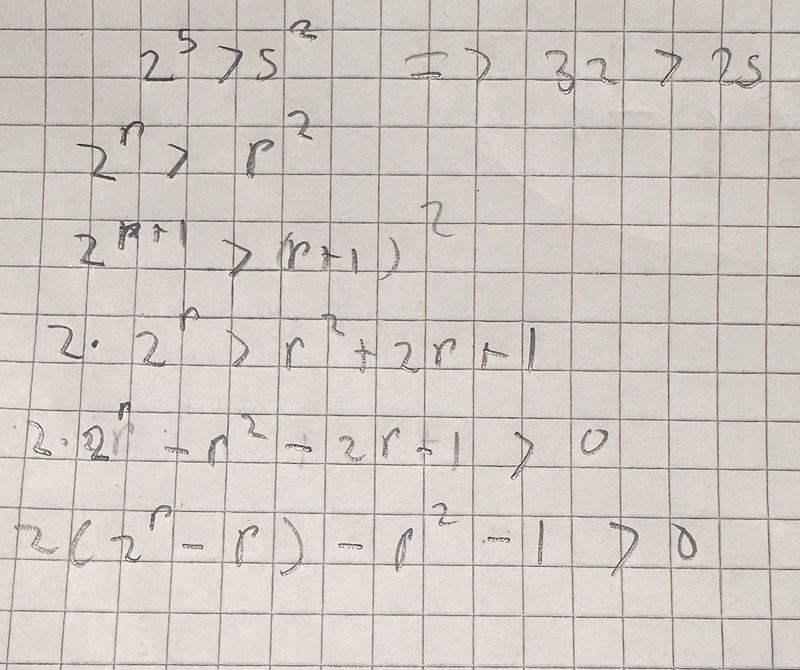 2⁵ > 5² => 32 > 25
2ʳ > r²
2ʳ⁺¹ > (r+1)²
2· 2ʳ > r² + 2r + 1
2·2ʳ - r² - 2r - 1 > 0
2(2ʳ - r) - r² - 1 > 0